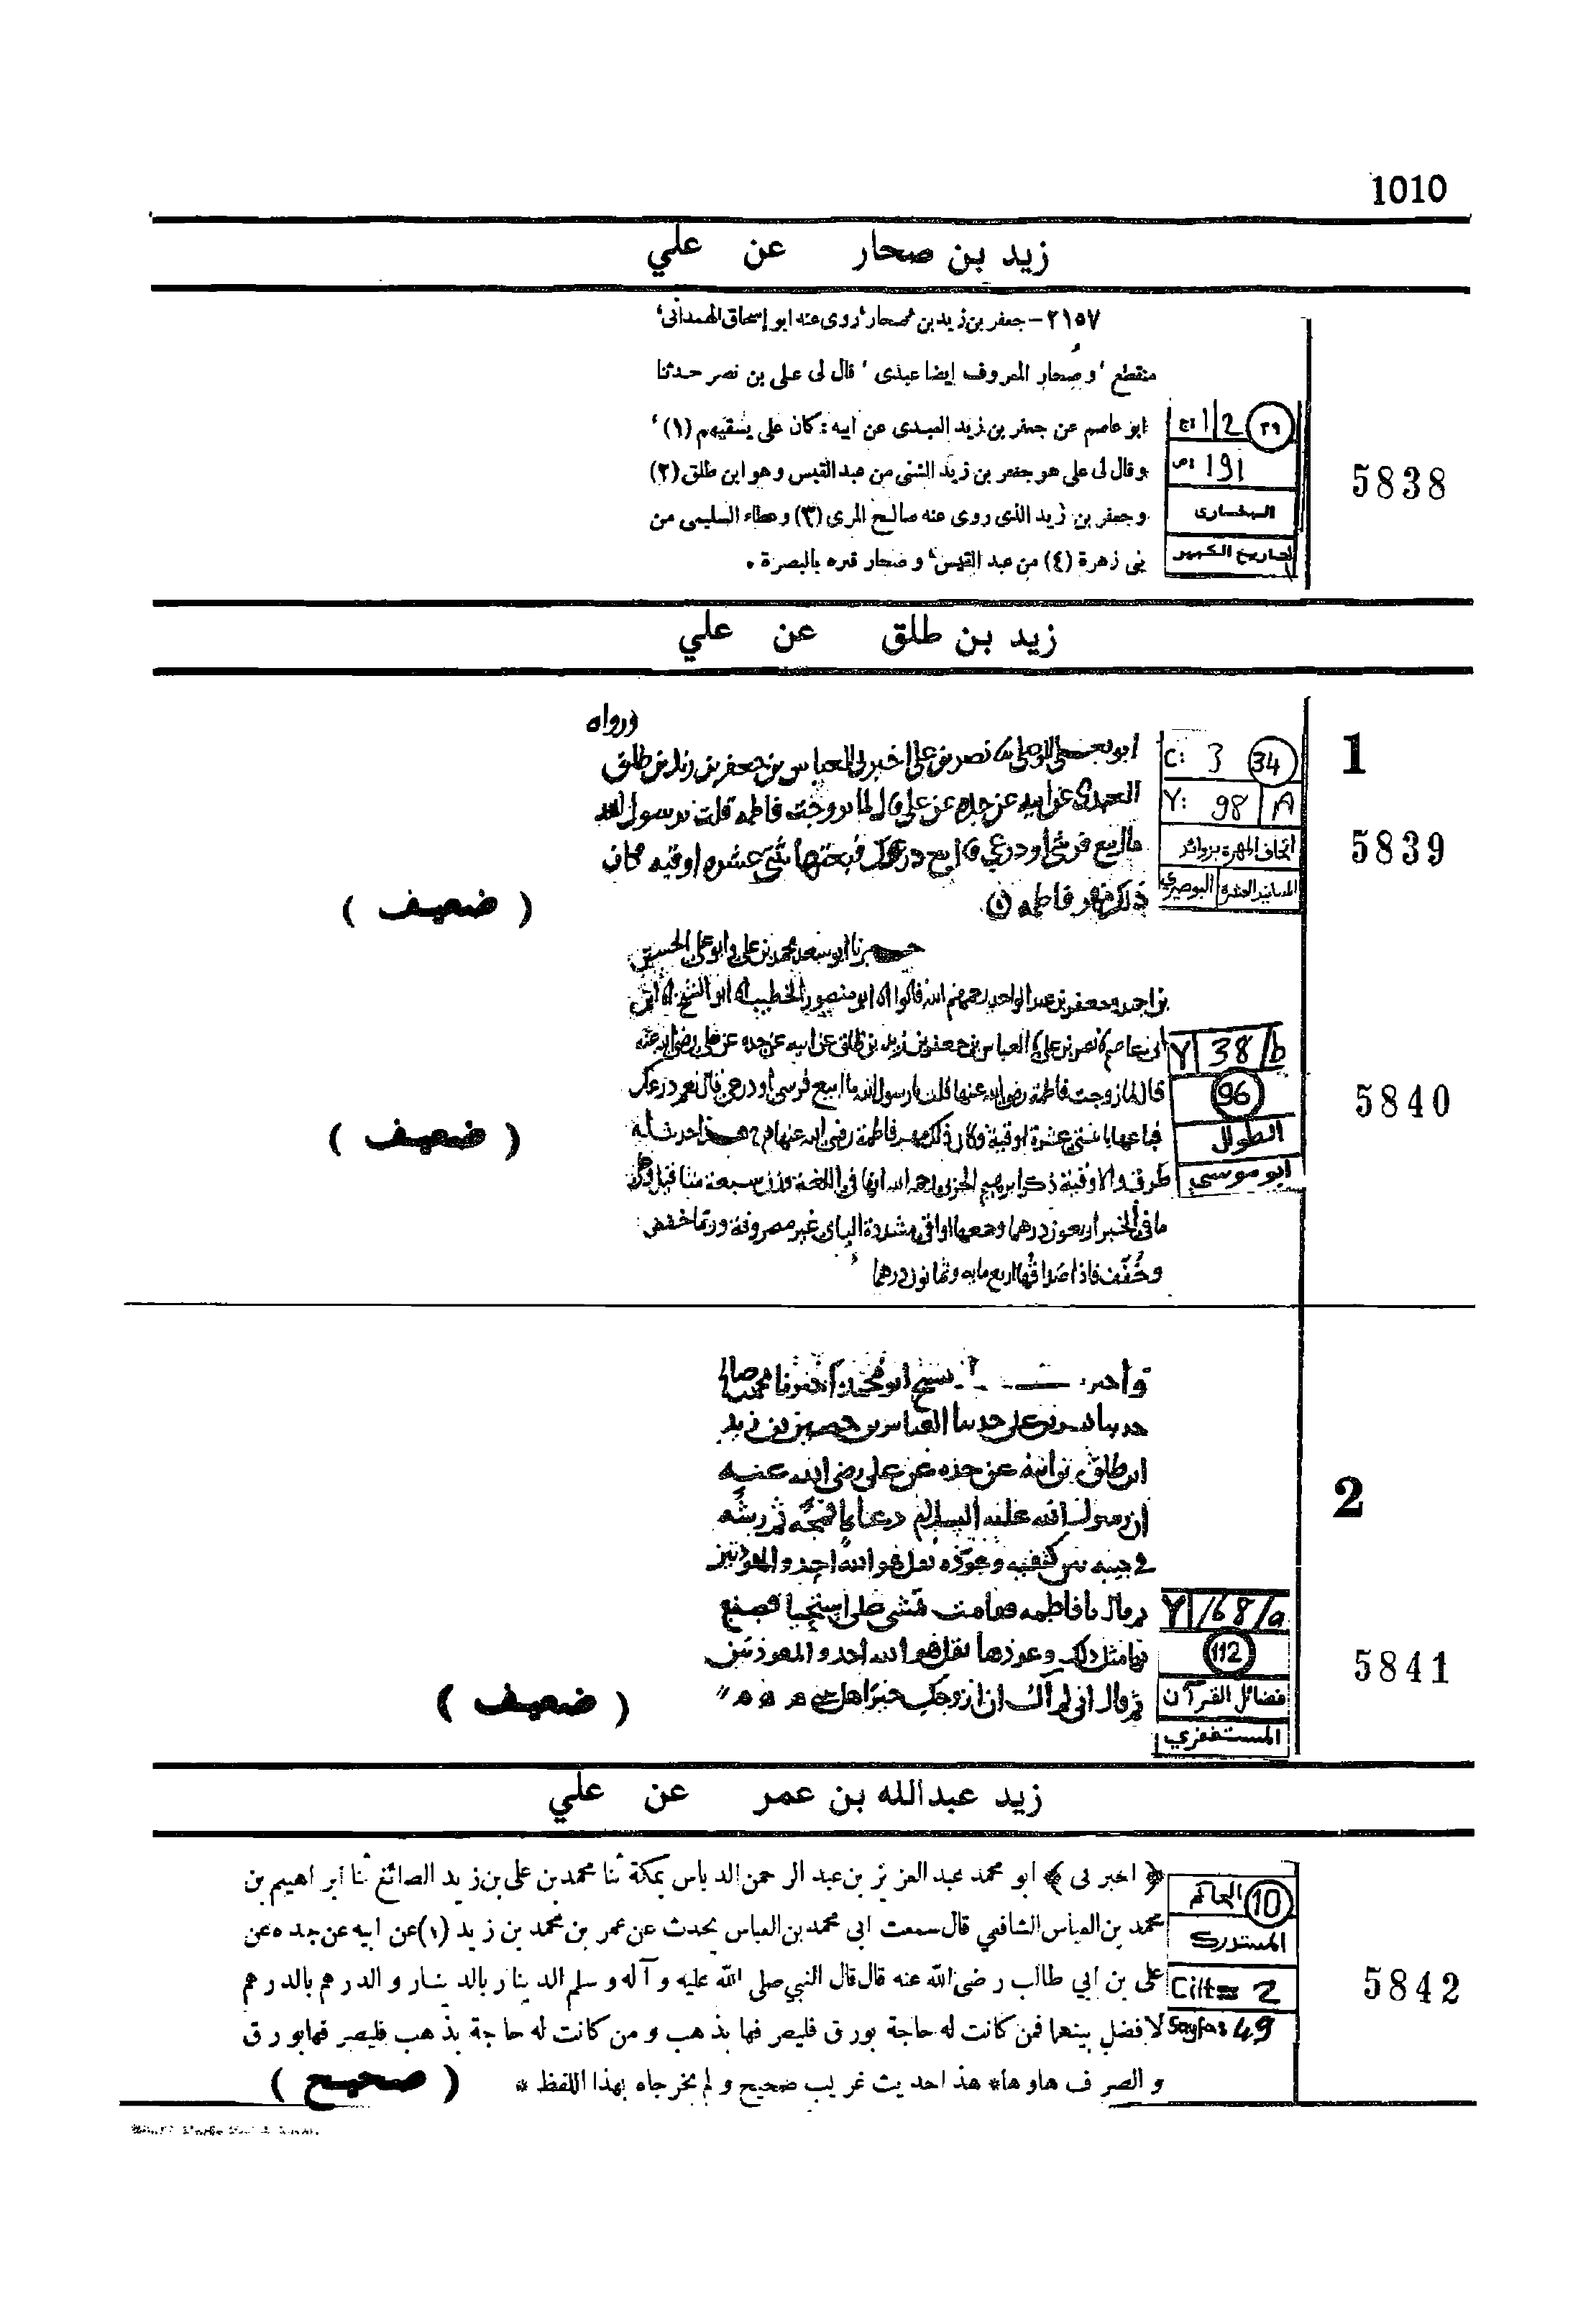 1010
زيد بن صحار عن علي
٢١٥٧ - جعفر بن زيد بن صحار، روى عنه ابو إسحاق الهمداني،
منقطع، وصحار المعروف ايضا عبدى، قال لى على بن نصر حدثنا
ابو عاصم عن جعفر بن زيد العبدى عن ابيه: كان على يسقيهم (١)،
وقال لى على هو جعفر بن زيد الشنى من عبد القيس وهو ابن طلق (٢)
وجعفر بن زيد الذى روى عنه صالح المرى (٣) وعطاء السليمى من
بنى زهرة (٤) من عبد القيس، وصحار قبره بالبصرة.
ج: 1/2 ٢٩
ص: 191
البخارى
تاريخ الكبير
5838
زيد بن طلق عن علي
1
ورواه
ابو يعلى الموصلى نصر بن على اخبرنى العباس بن جعفر بن زيد بن طلق
العبدى عن ابيه عن جده عن على قال لما تزوجت فاطمة قلت يرسول الله
ما ابيع فرسى او درعى قال بع درعك فبعتها بثنتى عشره اوقيه فكان
ذلك مهر فاطمه
( ضعيف )
C: 3 34
Y: 98 A
اتحاف المهرة بزوائد
المسانيد العشرة البوصيري
5839
ابو سعد محمد بن على وابو على الحسين
بن احمد وجعفر بن عبد الواحد رحمهم الله قالوا ابو منصور الخطيب ابو الشيخ
ابى عاصم نصر بن على العباس بن جعفر بن زيد بن طلق عن ابيه عن جده عن على رضى الله عنه
قال لما تزوجت فاطمة رضى الله عنها قلت يا رسول الله ما ابيع فرسى او درعى قال بع درعك
فباعها باثنتى عشرة اوقية وكان ذلك مهر فاطمة رضى الله عنها هذا حديث له
طرق والاوقية ذكر ابرهيم الحربى رحمه الله انها فى اللغة وزن سبعة مثاقيل
ما فى الخبر اربعون درهما وجمعها اواقى مشددة الياى غير مصروفة وربما خفض
وخفف فاذا صداقها اربع مايه وثمانون درهما
( ضعيف )
Y 38/b
96
الطوال
ابو موسى
5840
2
حدثنا نصر بن على حدثنا العباس بن جعفر بن زيد
ابن طلق عن ابيه عن جده عن على رضى الله عنه
ان رسول الله عليه السلام دعا بما فمجه ثم رشه
فى جيبه بين كتفيه وعوذه بقل هو الله احد والمعوذتين
ثم قال يا فاطمه فقامت تمشى على استحيا فصنع
بها مثل ذلك وعوذها بقل هو الله احد والمعوذتين
ثم قال انى لم آلك ان ازوجك خير اهلى
( ضعيف )
Y 168/a
112
فضائل القرآن
المستغفري
5841
زيد عبدالله بن عمر عن علي
﴿اخبرنى﴾ ابو محمد عبد العزيز بن عبد الرحمن الدباس بمكة ثنا محمد بن على بن زيد الصائغ ثنا ابراهيم بن
محمد بن العباس الشافعي قال سمعت ابى محمد بن العباس يحدث عن عمر بن محمد بن زيد (١) عن ابيه عن جده عن
على بن ابي طالب رضى الله عنه قال قال النبي صلى الله عليه وآله وسلم الدينار بالدينار والدرهم بالدرهم
لا فضل بينهما فمن كانت له حاجة بورق فليصرفها بذهب ومن كانت له حاجة بذهب فليصرفها بورق
والصرف هاوها* هذا حديث غريب صحيح ولم يخرجاه بهذا اللفظ *
( صحيح )
الحاكم 10
المستدرك
Cilt= 2
Sayfa: 49
5842